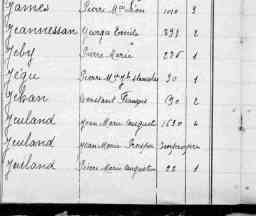 James Pierre M^ie Léon 1010 3
Jeannessan Georges Emile 898 2
Jeby Pierre Marie 226 1
Jégu Pierre M^ie 30 1
Jéhan Constant François 190 2
Jeuland Jean Marie Auguste 1630 4
Jeuland Jean Marie Prosper
Jeuland Pierre Marie Augustin 22 1